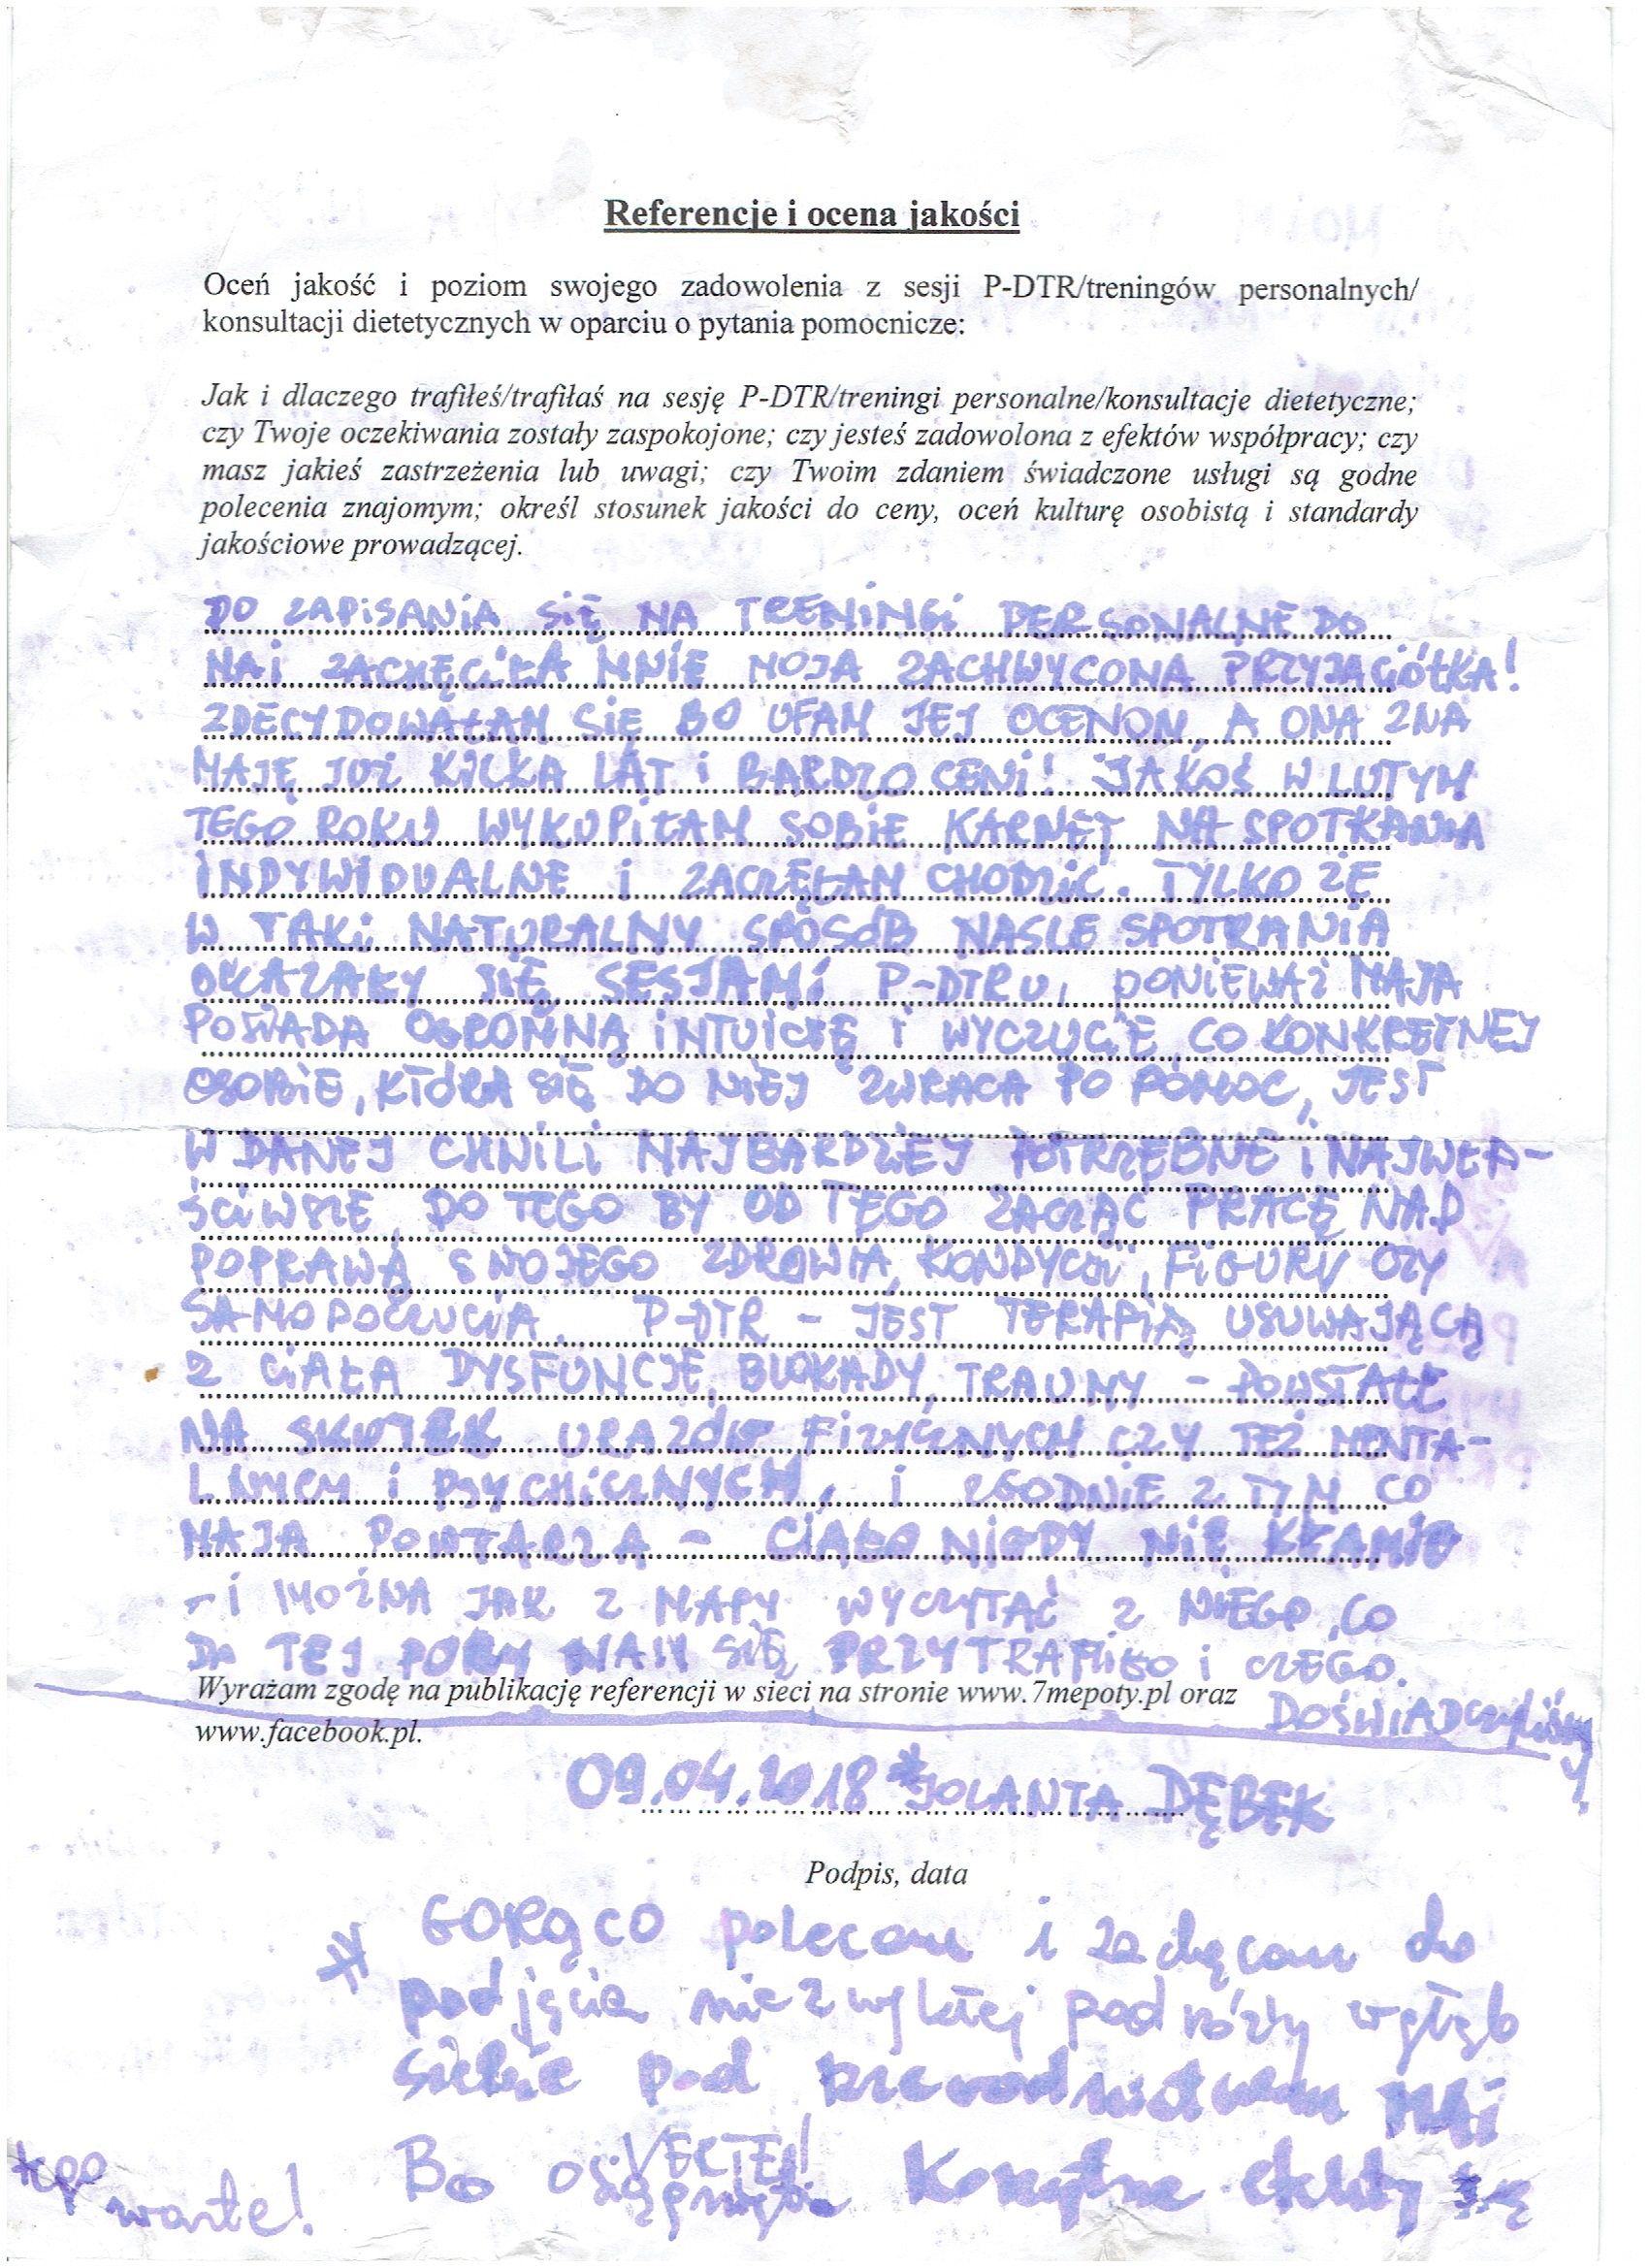 Referencje i ocena jakości
Oceń jakość i poziom swojego zadowolenia z sesji P-DTR/treningów personalnych/
konsultacji dietetycznych w oparciu o pytania pomocnicze:
Jak i dlaczego trafiłeś/trafiłaś na sesję P-DTR/treningi personalne/konsultacje dietetyczne;
czy Twoje oczekiwania zostały zaspokojone; czy jesteś zadowolona z efektów współpracy; czy
masz jakieś zastrzeżenia lub uwagi; czy Twoim zdaniem świadczone usługi są godne
polecenia znajomym; określ stosunek jakości do ceny, oceń kulturę osobistą i standardy
jakościowe prowadzącej.
DO ZAPISANIA SIĘ NA TRENINGI PERSONALNE DO
MAI ZACHĘCIŁA MNIE MOJA ZACHWYCONA PRZYJACIÓŁKA!
ZDECYDOWAŁAM SIĘ BO UFAM JEJ OCENOM, A ONA ZNA
MAJĘ JUŻ KILKA LAT I BARDZO CENI! JAKOŚ W LUTYM
TEGO ROKU WYKUPIŁAM SOBIE KARNET NA SPOTKANIA
INDYWIDUALNE I ZACZĘŁAM CHODZIĆ. TYLKO ŻE
W TAKI NATURALNY SPOSÓB NASZE SPOTKANIA
OKAZAŁY SIĘ SESJAMI P-DTRU, PONIEWAŻ MAJA
POSIADA OGROMNĄ INTUICJĘ I WYCZUCIE CO KONKRETNEJ
OSOBIE, KTÓRA SIĘ DO NIEJ ZWRACA PO POMOC, JEST
W DANEJ CHWILI NAJBARDZIEJ POTRZEBNE I NAJWŁA-
ŚCIWSZE DO TEGO BY OD TEGO ZACZĄĆ PRACĘ NAD
POPRAWĄ SWOJEGO ZDROWIA, KONDYCJI, FIGURY CZY
SAMOPOCZUCIA. P-DTR - JEST TERAPIĄ USUWAJĄCĄ
Z CIAŁA DYSFUNCJE, BLOKADY, TRAUMY - POWSTAŁE
NA SKUTEK URAZÓW FIZYCZNYCH CZY TEŻ MENTA-
LNYCH I PSYCHICZNYCH, I ZGODNIE Z TYM CO
MAJA POWTARZA - CIAŁO NIGDY NIE KŁAMIE
- I MOŻNA JAK Z MAPY WYCZYTAĆ Z NIEGO, CO
DO TEJ PORY NAM SIĘ PRZYTRAFIŁO I CZEGO
DOŚWIADCZYLIŚMY.
Wyrażam zgodę na publikację referencji w sieci na stronie www.7mepoty.pl oraz
www.facebook.pl.
09.04.2018 * JOLANTA DĘBEK
Podpis, data
* GORĄCO polecam i zachęcam do
podjęcia niezwykłej podróży w głąb
siebie pod przewodnictwem MAI
Bo osiągnięte konkretne efekty są
tego
warte!